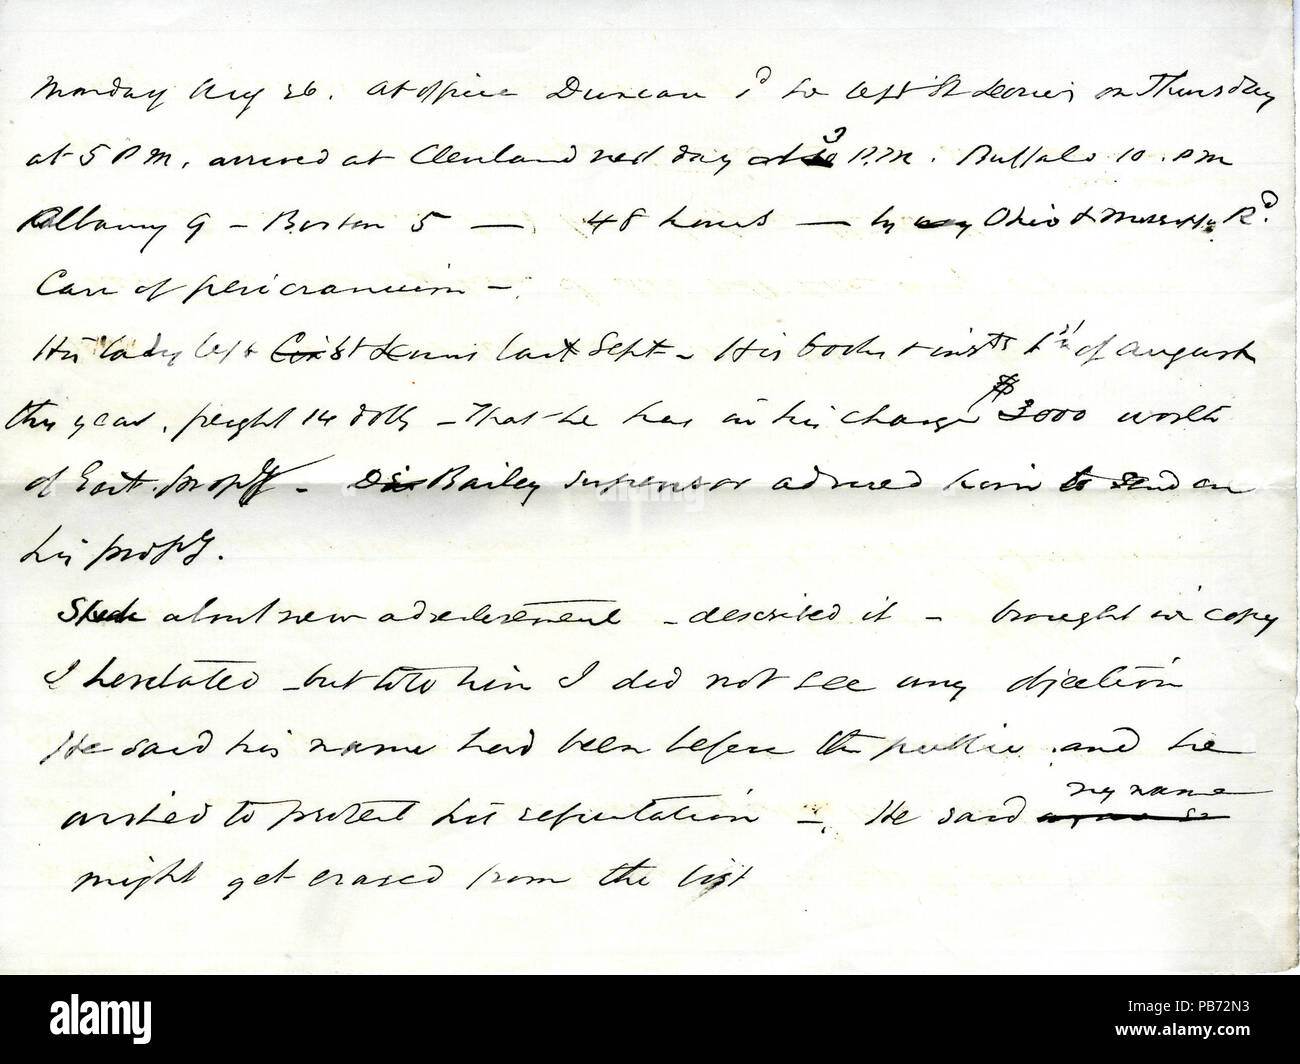 Monday Aug 26. at office Duncan sd he left St Louis on Thursday
at 5 P.M. arrived at Cleveland next day at 3 P.M. Buffalo 10. PM
Albany 9 – Boston 5 — 48 hours — by Ohio & Mississ Rd.
Case of pericranium –
His lady left St Louis last Sept – His books & insts 1st of August
this year, freight 14 dolls – that he has in his charge $3000 worth
of Govt. propty – Bailey supervisor advised him to send on
his propty.
about new advertisement – described it – brought in copy
I hesitated – but told him I did not see any objection
He said his name had been before the public and he
wished to protect his reputation –. He said my name
might get erased from the list
alamy
alamy
Image ID: PB72N3
www.alamy.com